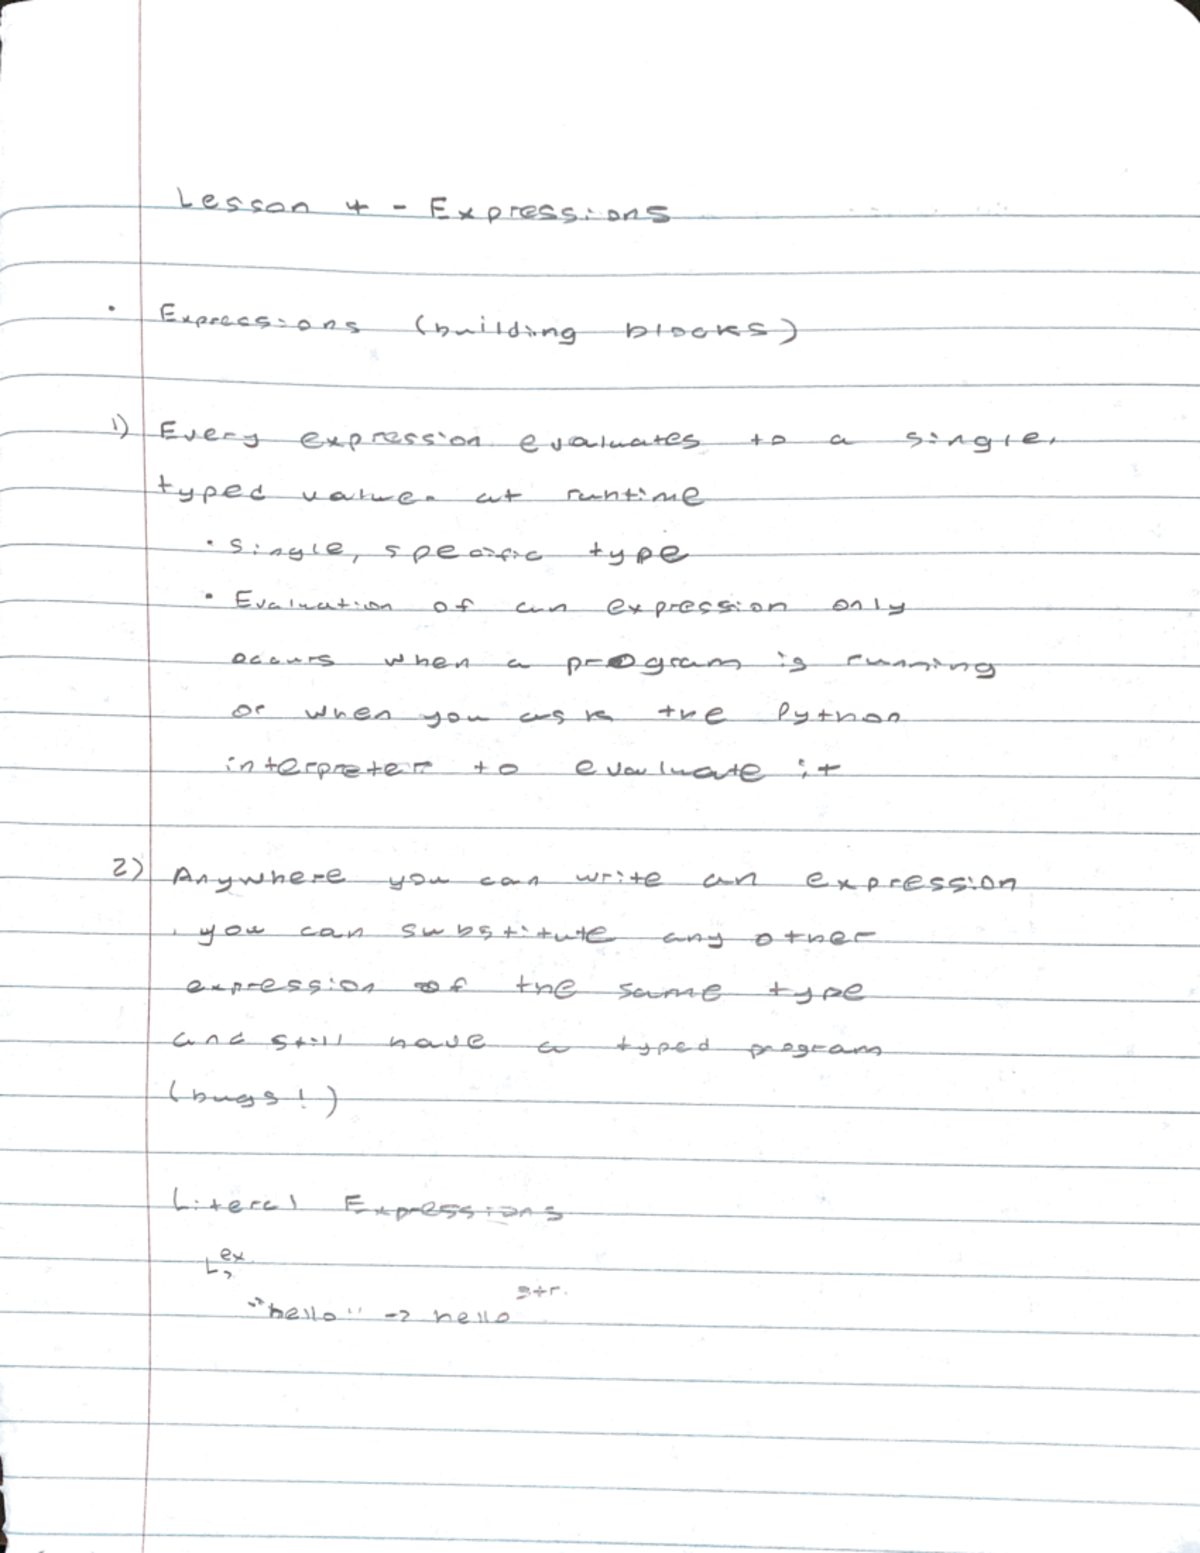 Lesson 4 - Expressions
• Expressions (building blocks)
1) Every expression evaluates to a single,
typed value. at runtime
• single, specific type
• Evaluation of an expression only
occurs when a program is running
or when you ask the Python
interpreter to evaluate it
2) Anywhere you can write an expression
, you can substitute any other
expression of the same type
and still have a typed program
(bugs!)
Literal Expressions
↳ ex
str.
"hello" -> hello